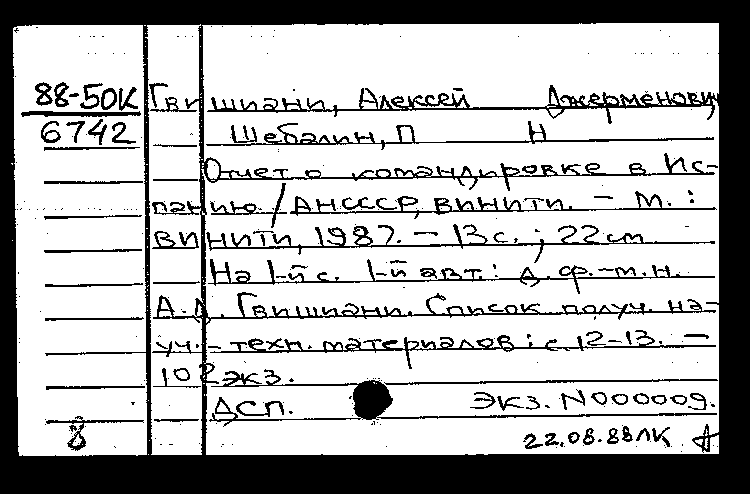 88-50К Гвишиани, Алексей Джерменович
6742 Шебалин, П Н
Отчет о командировке в Ис-
панию / АНСССР, ВИНИТИ. – М. :
ВИНИТИ, 1987. – 13 с. ; 22 см
На 1-й с. 1-й авт.: д. ф.-м.н.
А.Д. Гвишиани. Список получ. на-
уч.-техн. материалов : с. 12-13. –
102 экз.
ДСП. Экз. N000009.
8 22.08.88 ЛК